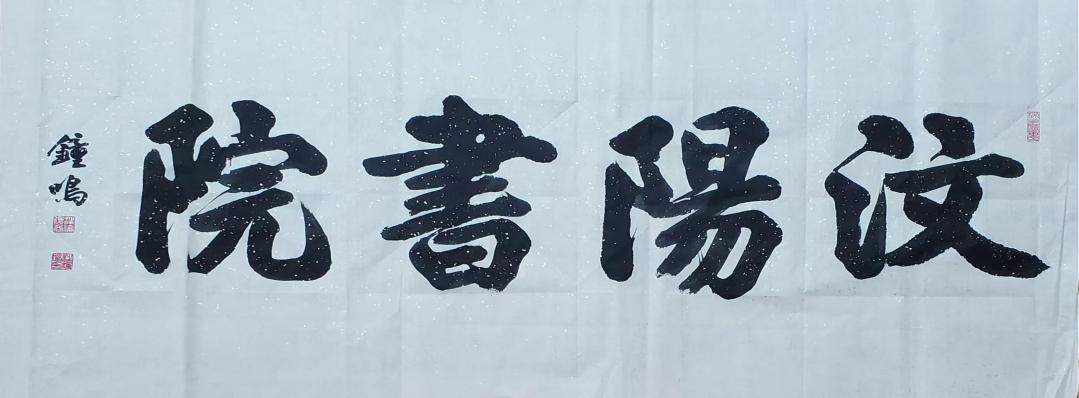 汶陽書院
鐘鳴